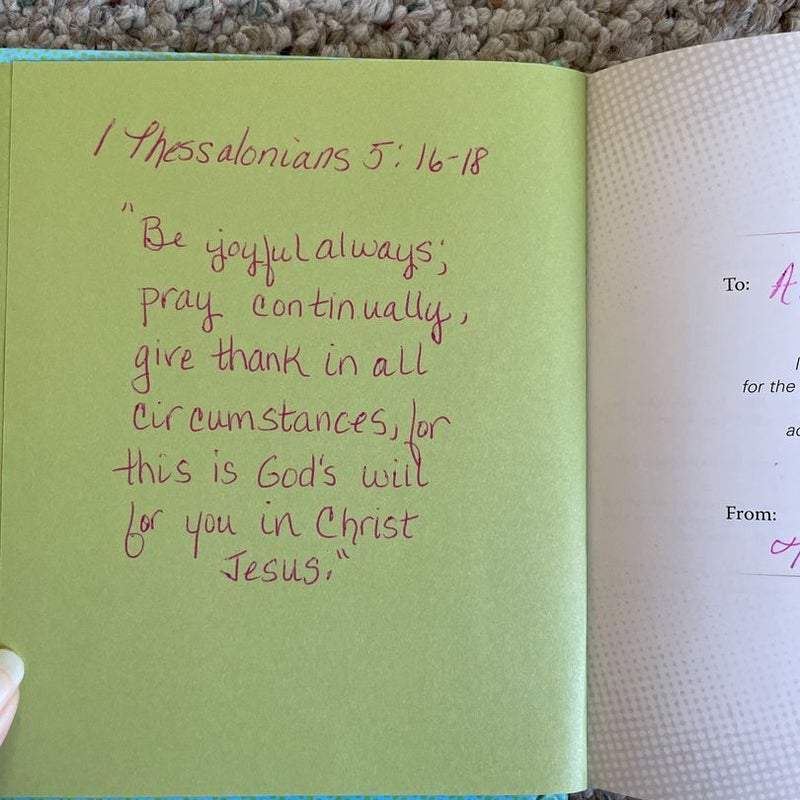 1 Thessalonians 5:16-18
"Be joyful always;
pray continually,
give thank in all
circumstances, for
this is God's will
for you in Christ
Jesus."
To: A
for the
From: